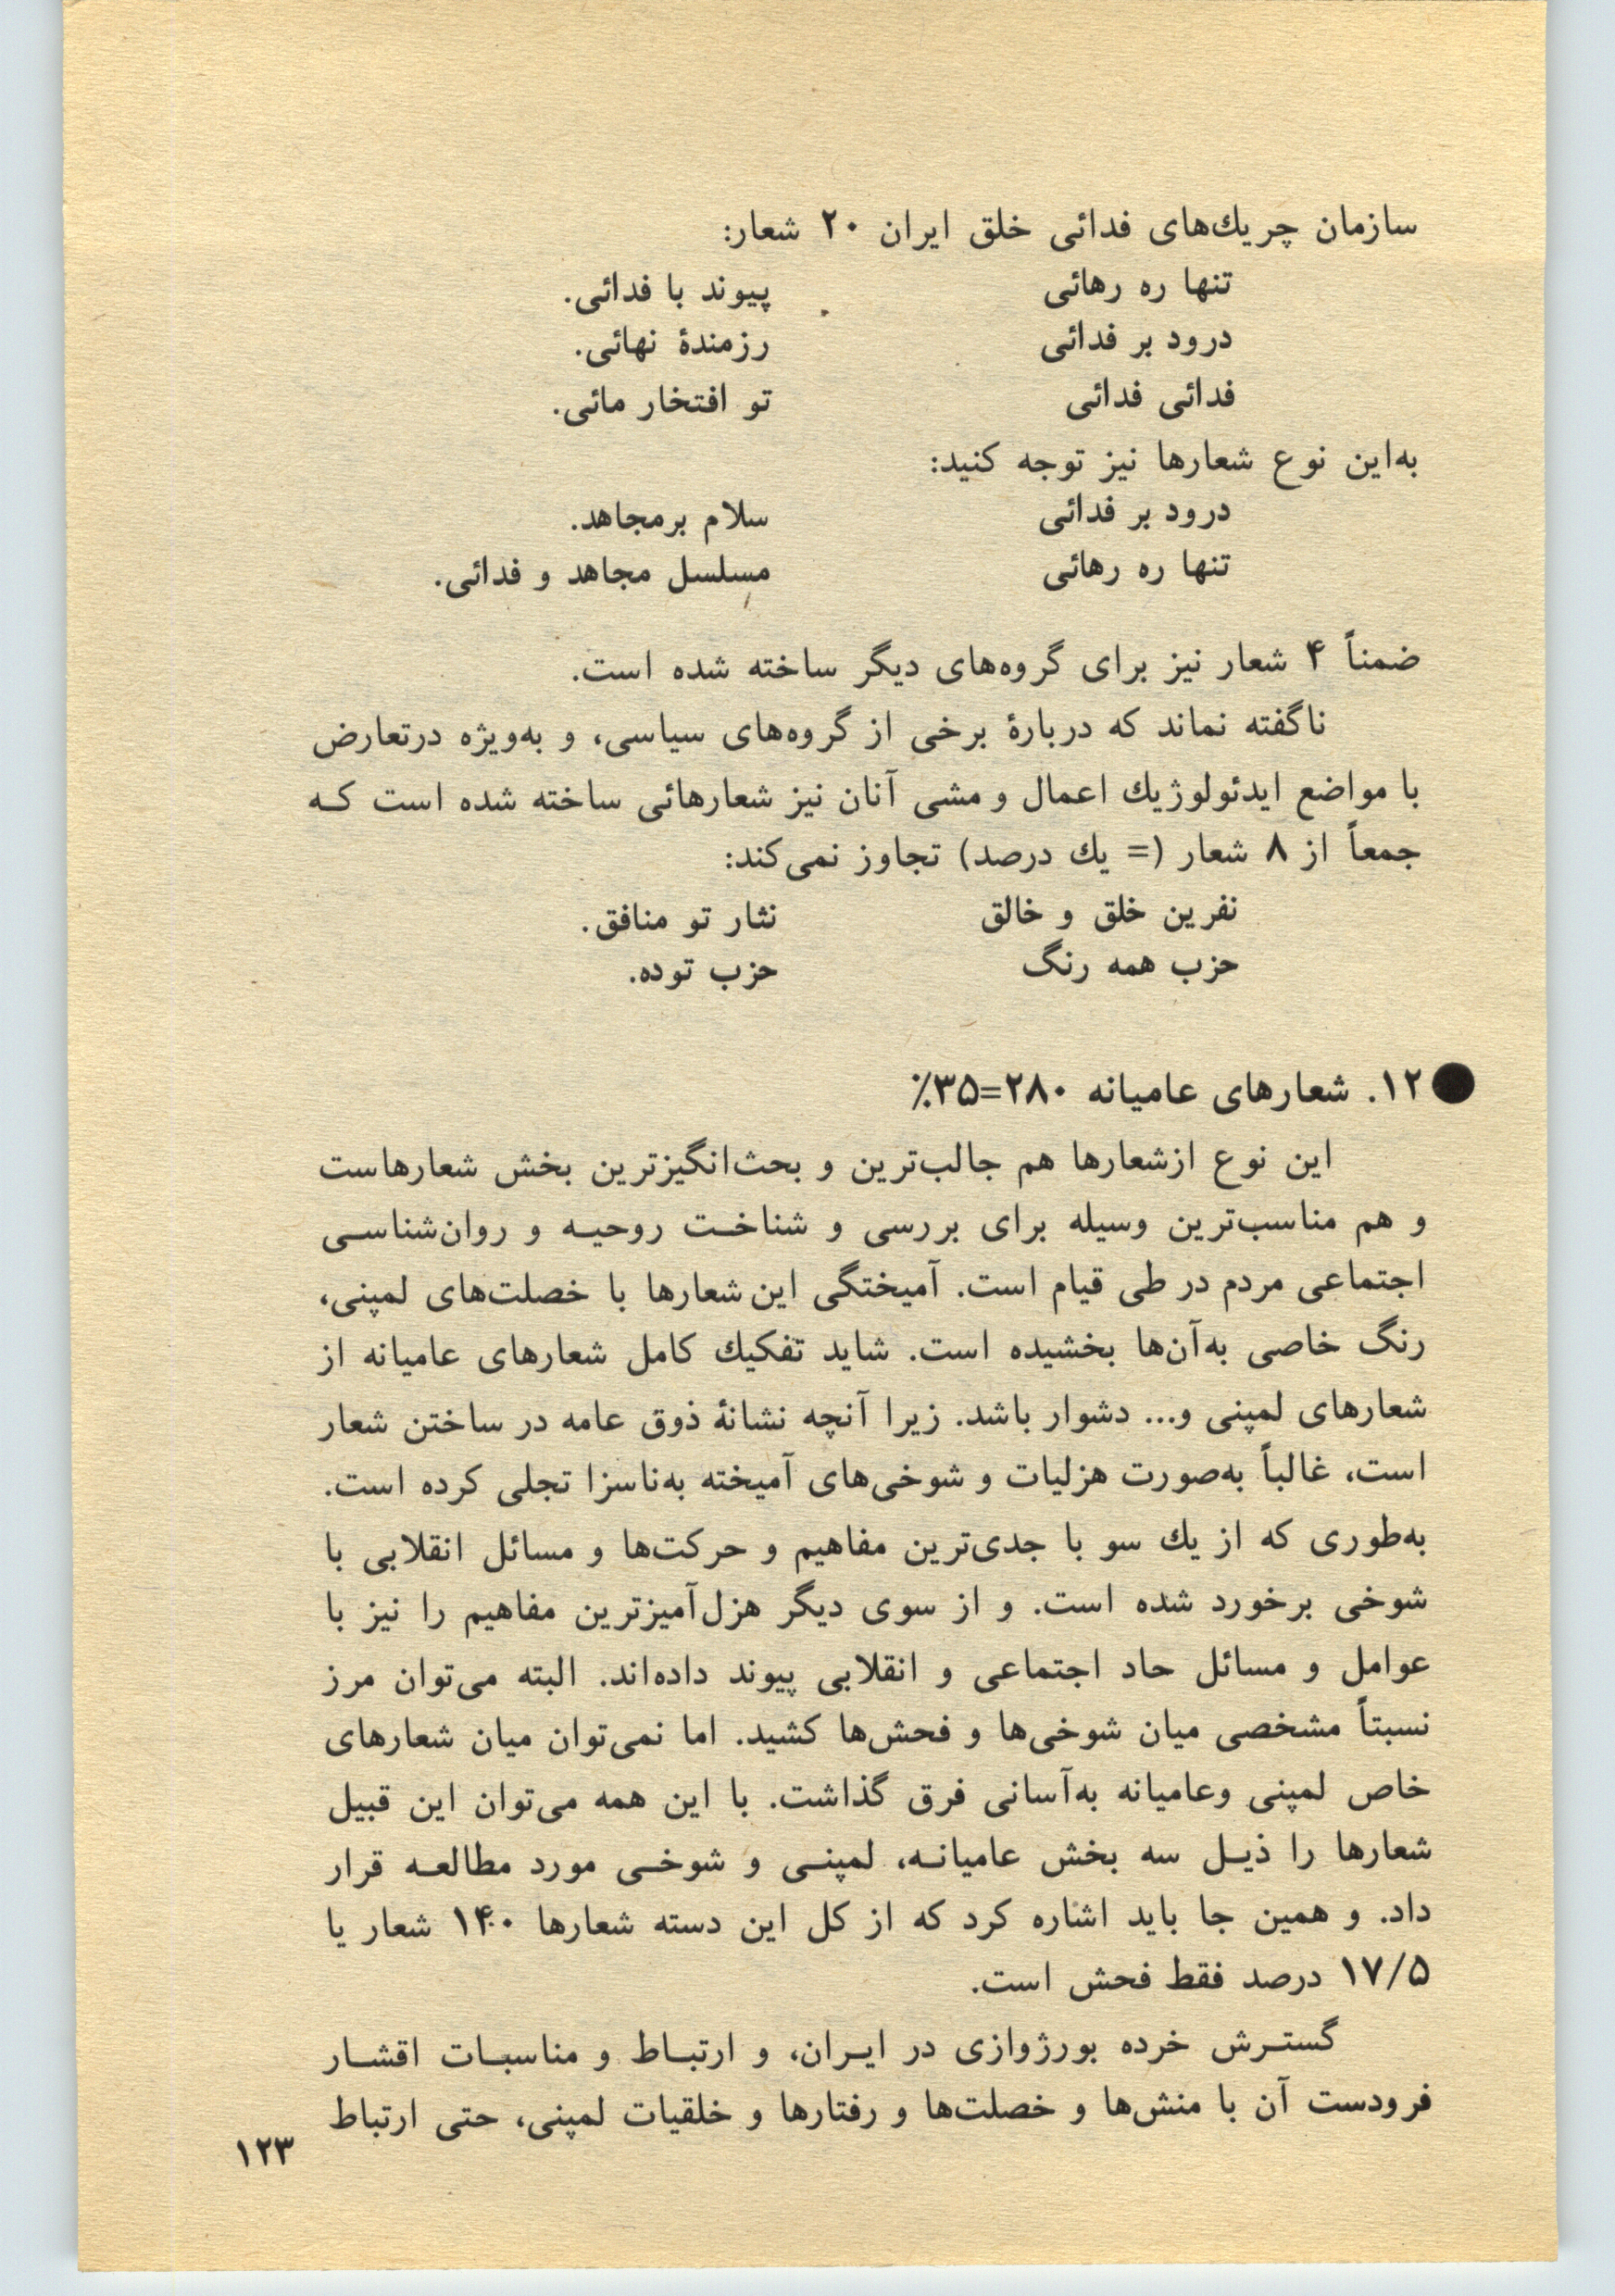 سازمان چریك‌های فدائی خلق ایران ۲۰ شعار:
تنها ره رهائی پیوند با فدائی.
درود بر فدائی رزمندهٔ نهائی.
فدائی فدائی تو افتخار مائی.
به‌این نوع شعارها نیز توجه کنید:
درود بر فدائی سلام برمجاهد.
تنها ره رهائی مسلسل مجاهد و فدائی.
ضمناً ۴ شعار نیز برای گروه‌های دیگر ساخته شده است.
ناگفته نماند که دربارهٔ برخی از گروه‌های سیاسی، و به‌ویژه درتعارض
با مواضع ایدئولوژیك اعمال و مشی آنان نیز شعارهائی ساخته شده است کـه
جمعاً از ۸ شعار (= یك درصد) تجاوز نمی‌کند:
نفرین خلق و خالق نثار تو منافق.
حزب همه رنگ حزب توده.
۱۲. شعارهای عامیانه ۲۸۰=۳۵٪
این نوع ازشعارها هم جالب‌ترین و بحث‌انگیزترین بخش شعارهاست
و هم مناسب‌ترین وسیله برای بررسی و شناخـت روحیـه و روان‌شناسـی
اجتماعی مردم در طی قیام است. آمیختگی این شعارها با خصلت‌های لمپنی،
رنگ خاصی به‌آن‌ها بخشیده است. شاید تفکیك کامل شعارهای عامیانه از
شعارهای لمپنی و... دشوار باشد. زیرا آنچه نشانهٔ ذوق عامه در ساختن شعار
است، غالباً به‌صورت هزلیات و شوخی‌های آمیخته به‌ناسزا تجلی کرده است.
به‌طوری که از یك سو با جدی‌ترین مفاهیم و حرکت‌ها و مسائل انقلابی با
شوخی برخورد شده است. و از سوی دیگر هزل‌آمیزترین مفاهیم را نیز با
عوامل و مسائل حاد اجتماعی و انقلابی پیوند داده‌اند. البته می‌توان مرز
نسبتاً مشخصی میان شوخی‌ها و فحش‌ها کشید. اما نمی‌توان میان شعارهای
خاص لمپنی وعامیانه به‌آسانی فرق گذاشت. با این همه می‌توان این قبیل
شعارها را ذیـل سه بخش عامیانـه، لمپنـی و شوخـی مورد مطالعـه قرار
داد. و همین جا باید اشاره کرد که از کل این دسته شعارها ۱۴۰ شعار یا
۱۷/۵ درصد فقط فحش است.
گستـرش خرده بورژوازی در ایـران، و ارتبـاط و مناسبـات اقشـار
فرودست آن با منش‌ها و خصلت‌ها و رفتارها و خلقیات لمپنی، حتی ارتباط
۱۲۳